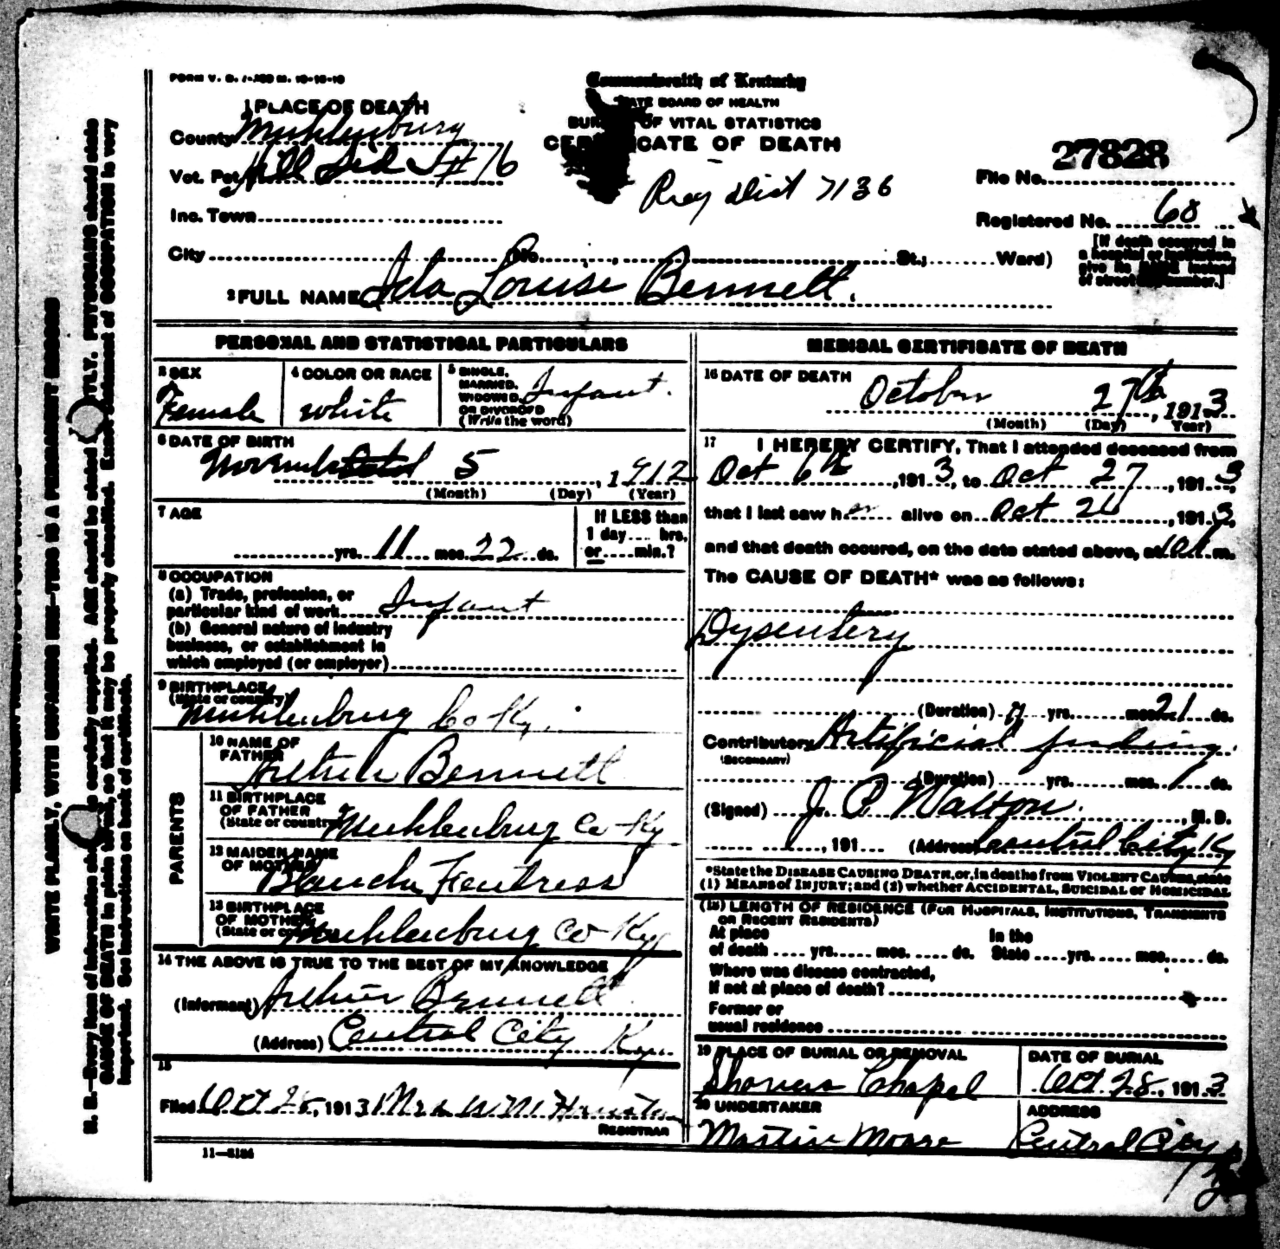 Commonwealth of Kentucky
STATE BOARD OF HEALTH
BUREAU OF VITAL STATISTICS
CERTIFICATE OF DEATH
1 PLACE OF DEATH
County Muhlenburg
Vot. Pct. Hill Sid #16
Inc. Town
City No. St.; Ward)
Reg Dist 7136
File No. 27828
Registered No. 68
[If death occurred in
a hospital or institution,
give its NAME instead
of street and number.]
2 FULL NAME Ida Louise Bennett.
PERSONAL AND STATISTICAL PARTICULARS
3 SEX
Female
4 COLOR OR RACE
white
5 SINGLE,
MARRIED,
WIDOWED,
OR DIVORCED
(Write the word)
Infant.
6 DATE OF BIRTH
5, 1912
(Month) (Day) (Year)
7 AGE
yrs. 11 mos. 22 ds.
If LESS than
1 day.... hrs.
or.....min.?
8 OCCUPATION
(a) Trade, profession, or
particular kind of work.... Infant
(b) General nature of industry
business, or establishment in
which employed (or employer)
9 BIRTHPLACE
(State or country)
Muhlenburg Co Ky.
PARENTS
10 NAME OF
FATHER
Arthur Bennett
11 BIRTHPLACE
OF FATHER
(State or country)
Muhlenburg Co Ky
12 MAIDEN NAME
OF MOTHER
Blanche Fentress
13 BIRTHPLACE
OF MOTHER
(State or country)
Muhlenburg Co Ky
14 THE ABOVE IS TRUE TO THE BEST OF MY KNOWLEDGE
(Informant) Arthur Bennett
(Address) Central City Ky.
15
Filed Oct 28, 1913 Mrs W M
REGISTRAR
11—8184
MEDICAL CERTIFICATE OF DEATH
16 DATE OF DEATH
October 27th, 1913
(Month) (Day) (Year)
17 I HEREBY CERTIFY, That I attended deceased from
Oct 6th, 1913, to Oct 27, 1913,
that I last saw her alive on Oct 26, 1913,
and that death occured, on the date stated above, at m.
The CAUSE OF DEATH* was as follows:
Dysentery
(Duration) yrs. mos. 21 ds.
Contributory Artificial feeding.
(SECONDARY)
(Duration) yrs. mos. ds.
(Signed) J. P. Walton, M. D.
, 191 (Address) Central City Ky
*State the DISEASE CAUSING DEATH, or, in deaths from VIOLENT CAUSES, state
(1) MEANS of INJURY; and (2) whether ACCIDENTAL, SUICIDAL or HOMICIDAL
(18) LENGTH OF RESIDENCE (FOR HOSPITALS, INSTITUTIONS, TRANSIENTS
OR RECENT RESIDENTS)
At place In the
of death .... yrs. .... mos. .... ds. State .... yrs. .... mos. .... ds.
Where was disease contracted,
If not at place of death?
Former or
usual residence
19 PLACE OF BURIAL OR REMOVAL
Chapel
DATE OF BURIAL
Oct 28, 1913
20 UNDERTAKER
Martin Moore
ADDRESS
Central City
Ky
WRITE PLAINLY, WITH UNFADING INK—THIS IS A PERMANENT RECORD
N. B.—Every item of information should be carefully supplied. AGE should be stated EXACTLY. PHYSICIANS should state
CAUSE OF DEATH in plain terms, so that it may be properly classified. Exact statement of OCCUPATION is very
important. See instructions on back of certificate.